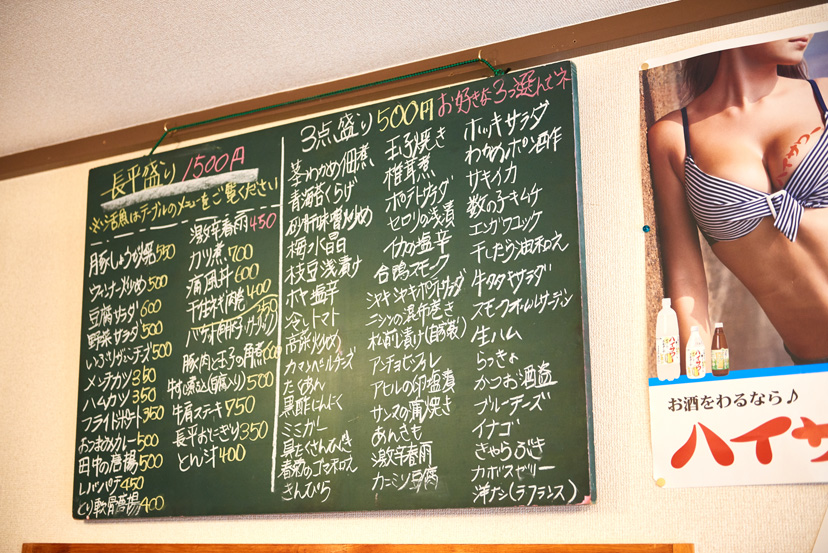 長平盛り 1500円
※ハ活魚はテーブルのメニューをご覧ください
豚しょうが焼 550
ウィンナー炒め 500
豆腐サラダ 600
野菜サラダ 500
いぶりがっこチーズ 500
メンチカツ 350
ハムカツ 350
フライドポテト 350
おつまみカレー 500
田中の唐揚 500
レバパテ 450
とり軟骨唐揚 400
激辛春雨 450
カツ煮 700
痛風丼 600
干生冰イカ焼 400
豚肉と玉子の角煮
500
牛肩ステーキ 750
長平おにぎり 350
とん汁 400
3点盛り 500円 お好きな3つ選んでネ
茎わかめ佃煮
青海苔くらげ
砂肝味噌炒め
梅水晶
枝豆浅漬け
ホヤ塩辛
冷しトマト
高菜炒め
カマンベールチーズ
たくあん
黒酢にんにく
ミミガー
具だくさんひじき
春菊のゴマ和え
きんぴら
玉子焼き
椎茸煮
ポテトサラダ
セロリの浅漬
イカの塩辛
合鴨スモーク
シャキシャキポテトサラダ
ニシンの昆布巻き
松前漬け(自家製)
アンチョビオイル
アヒルの卵塩漬
サンマの蒲焼き
あんきも
激辛春雨
カニミソ豆腐
ホッキサラダ
わかめポン酢作
サキイカ
数の子キムチ
エンガワユッケ
干したら油和え
牛タタキサラダ
スモークオイルサーディン
生ハム
らっきょ
かつお酒盗
ブルーチーズ
イナゴ
きゃらぶき
カボスゼリー
洋ナシ(ラフランス)
お酒をわるなら♪
ハイサ